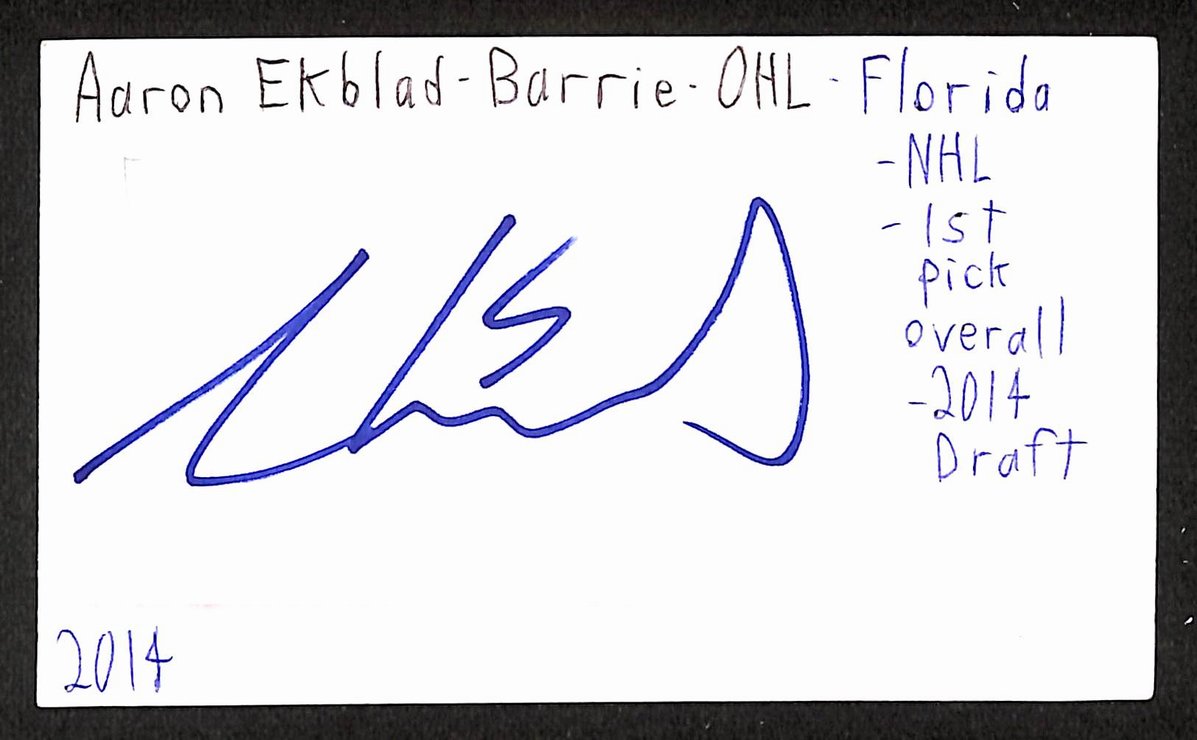 Aaron Ekblad-Barrie-OHL-Florida
-NHL
-1st
pick
overall
-2014
Draft
2014